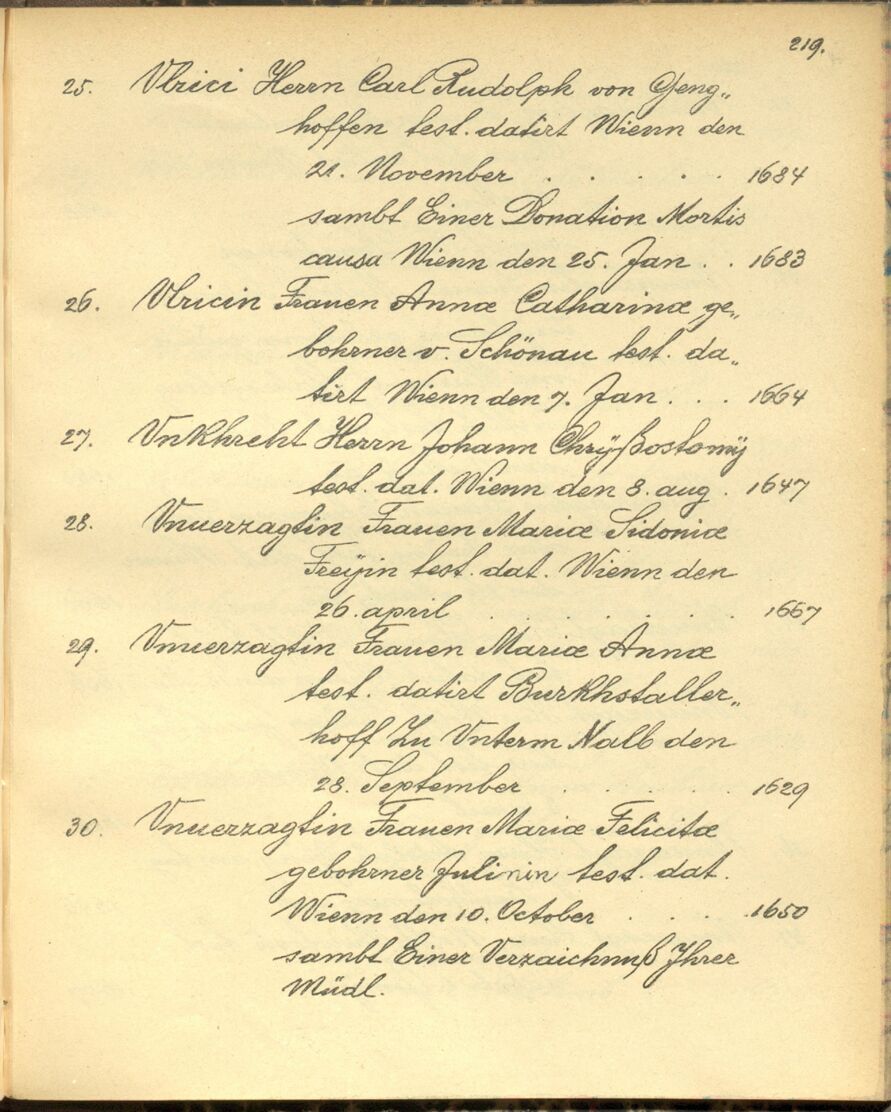 219.
25. Vlrici Herrn Carl Rudolph von Geng„
hoffen test. datirt Wienn den
21. November . . . . . 1684
sambt Einer Donation Mortis
causa Wienn den 25. Jan . . 1683
26. Vlricin Frauen Annæ Catharinæ ge„
bohrner v. Schönau test. da„
tirt Wienn den 7. Jan . . . 1664
27. Vnkhrecht Herrn Johann Chrÿßostomÿ
test. dat. Wienn den 8. aug . 1647
28. Vnuerzagtin Frauen Mariæ Sidoniæ
Freÿin test. dat. Wienn den
26. april . . . . . . 1667
29. Vnuerzagtin Frauen Mariæ Annæ
test. datirt Burkhstaller„
hoff Zu Vnterm Nalb den
28. September . . . . . 1629
30. Vnuerzagtin Frauen Mariæ Felicitæ
gebohrner Julinin test. dat.
Wienn den 10. October . . . . 1650
sambt Einer Verzaichnuß Ihrer
Müdl.